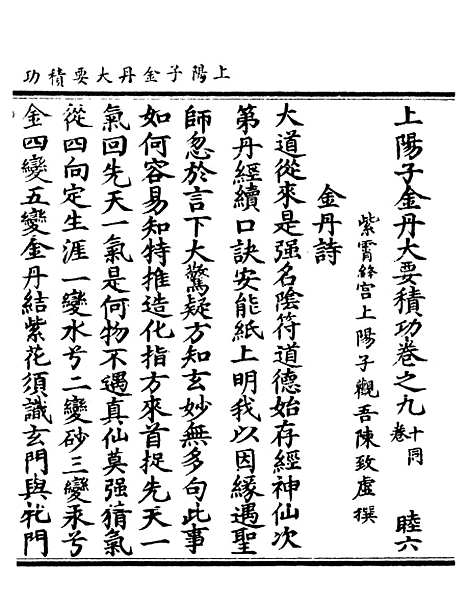 上陽子金丹大要積功
上陽子金丹大要積功卷之九 十同卷 睦六
紫霄絳宫上陽子觀吾陳致虛撰
金丹詩
大道從來是强名陰符道德始存經神仙次
第丹經續口訣安能紙上明我以因緣遇聖
師忽於言下大驚疑方知玄妙無多句此事
如何容易知特推造化指方來首捉先天一
氣回先天一氣是何物不遇真仙莫强猜氣
從四向定生涯一變水兮二變砂三變汞兮
金四變五變金丹結紫花須識玄門與牝門